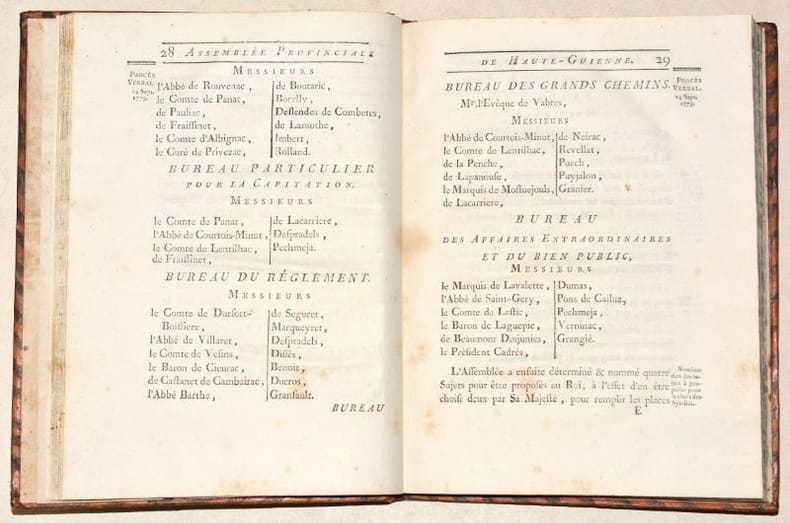 28 ASSEMBLÉE PROVINCIALE
PROCÈS
VERBAL.
14 Sept.
1779.
MESSIEURS
l'Abbé de Rouvenac, de Boutaric,
le Comte de Panat, Borelly,
de Pauliac, Deslendes de Combetes,
de Fraissinet, de Lamothe,
le Comte d'Albignac, Imbert,
le Curé de Privezac, Rolland.
BUREAU PARTICULIER
POUR LA CAPITATION.
MESSIEURS
le Comte de Panat, de Lacarriere,
l'Abbé de Courtois-Minut, Despradels,
le Comte de Lentilhac, Pechmeja.
de Fraissinet,
BUREAU DU RÉGLEMENT.
MESSIEURS
le Comte de Dursort- de Seguret,
Boissiere, Marqueyret,
l'Abbé de Villaret, Despradels,
le Comte de Vesins, Dissès,
le Baron de Cieurac, Benoit,
de Castanet de Cambairac, Ducros,
l'Abbé Barthe, Gransault.
BUREAU
DE HAUTE-GUIENNE. 29
PROCÈS
VERBAL.
14 Sept.
1779.
BUREAU DES GRANDS CHEMINS.
Mr. l'Evêque de Vabres,
MESSIEURS
l'Abbé de Courtois-Minut, de Neirac,
le Comte de Lentilhac, Revellat,
de la Penche, Puech,
de Lapanouse, Puyjalon,
le Marquis de Mostuejouls, Granier.
de Lacarriere,
BUREAU
DES AFFAIRES EXTRAORDINAIRES
ET DU BIEN PUBLIC,
MESSIEURS
le Marquis de Lavalette, Dumas,
l'Abbé de Saint-Gery, Pons de Cailuz,
le Comte de Lastic, Pechmeja,
le Baron de Laguepie, Verninac,
de Beaumont Desjunies, Grangié.
le Président Cadrés,
L'Assemblée a ensuite déterminé & nommé quatre
Sujets pour être proposés au Roi, à l'effet d'en être
choisi deux par Sa Majesté, pour remplir les places
Syndics.
E